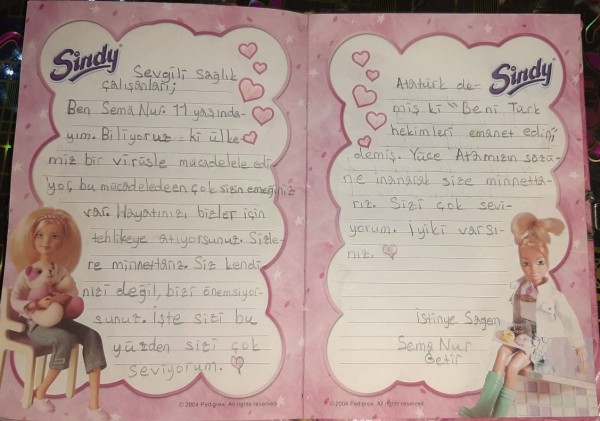 Sindy
Sevgili sağlık
çalışanları;
Ben Sema Nur. 11 yaşında-
yım. Biliyoruz ki ülke-
miz bir virüsle mücadelele edi
yor, bu mücadeledeen çok sizin emeğiniz
var. Hayatınızı bizler için
tehlikeye atıyorsunuz. Sizle-
re minnettarız. Siz kendi
nizi değil, bizi önemsiyor-
sunuz. İşte sizi bu
yüzden sizi çok
seviyorum.
© 2004 Pedigree. All rights reserved.
Sindy
Atatürk de-
miş ki "Beni Türk
hekimleri emanet edin;
demiş. Yüce Atamızın sözü-
ne inanarak size minnetta-
rız. Sizi çok sevi-
yorum. İyiki varsı-
nız.
İstinye
Sema Nur
Getir
© 2004 Pedigree. All rights reserved.